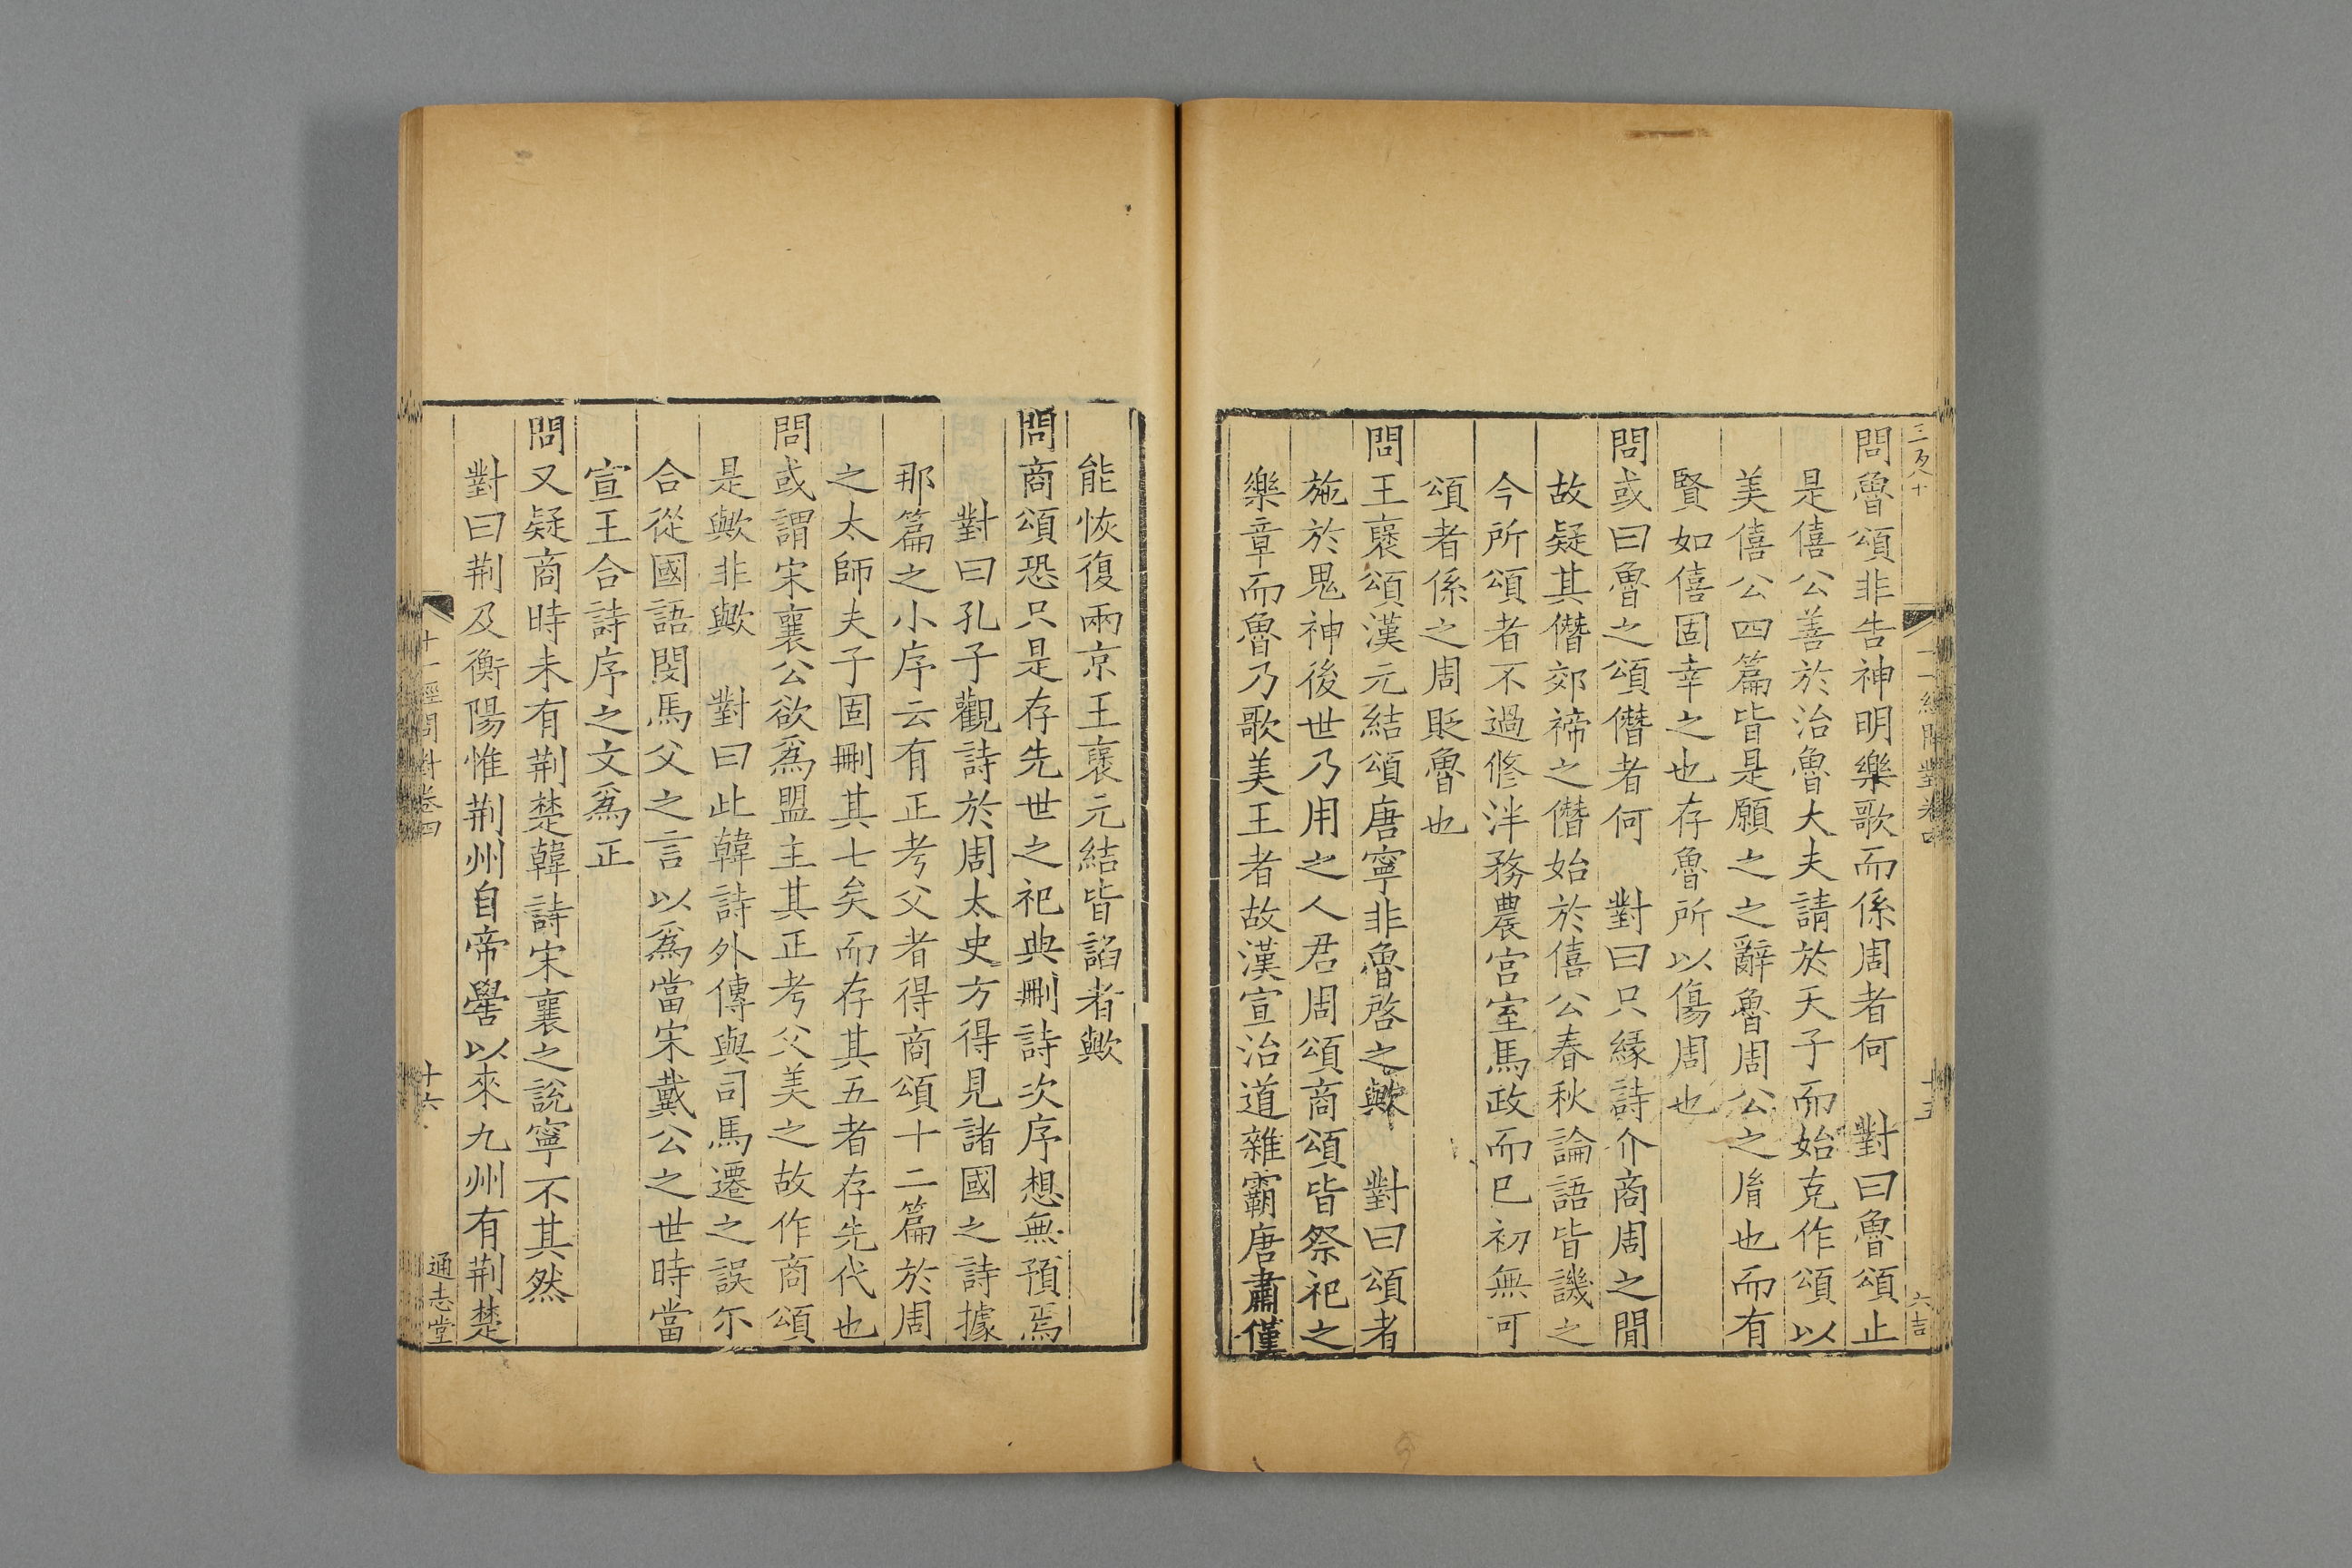 三百八十
十一經問對卷四
十五
六吉
問魯頌非告神明樂歌而係周者何　對曰魯頌止
是僖公善於治魯大夫請於天子而始克作頌以
美僖公四篇皆是願之之辭魯周公之胤也而有
賢如僖固幸之也存魯所以傷周也
問或曰魯之頌僭者何　對曰只緣詩介商周之閒
故疑其僭郊禘之僭始於僖公春秋論語皆譏之
今所頌者不過修泮務農宮室馬政而已初無可
頌者係之周貶魯也
問王襃頌漢元結頌唐寧非魯啓之歟　對曰頌者
施於鬼神後世乃用之人君周頌商頌皆祭祀之
樂章而魯乃歌美王者故漢宣治道雜霸唐肅僅
能恢復兩京王襃元結皆諂者歟
問商頌恐只是存先世之祀典刪詩次序想無預焉
對曰孔子觀詩於周太史方得見諸國之詩據
那篇之小序云有正考父者得商頌十二篇於周
之太師夫子固刪其七矣而存其五者存先代也
問或謂宋襄公欲爲盟主其正考父美之故作商頌
是歟非歟　對曰此韓詩外傳與司馬遷之誤尒
合從國語閔馬父之言以爲當宋戴公之世時當
宣王合詩序之文爲正
問又疑商時未有荆楚韓詩宋襄之說寧不其然
對曰荆及衡陽惟荆州自帝嚳以來九州有荆楚
十一經問對卷四
十六
通志堂